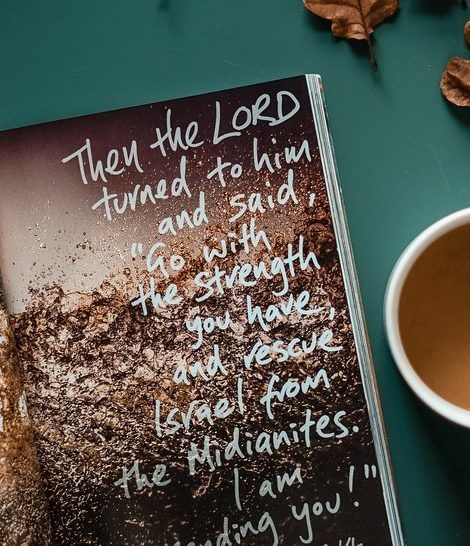 Then the LORD
turned to him
and said,
"Go with
the strength
you have,
and rescue
Israel from
the Midianites.
I am
sending you!"